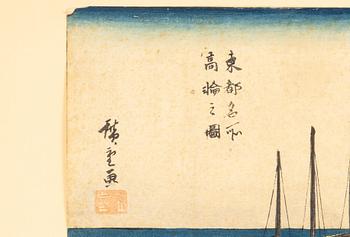 東都名所
高輪之圖
廣重画